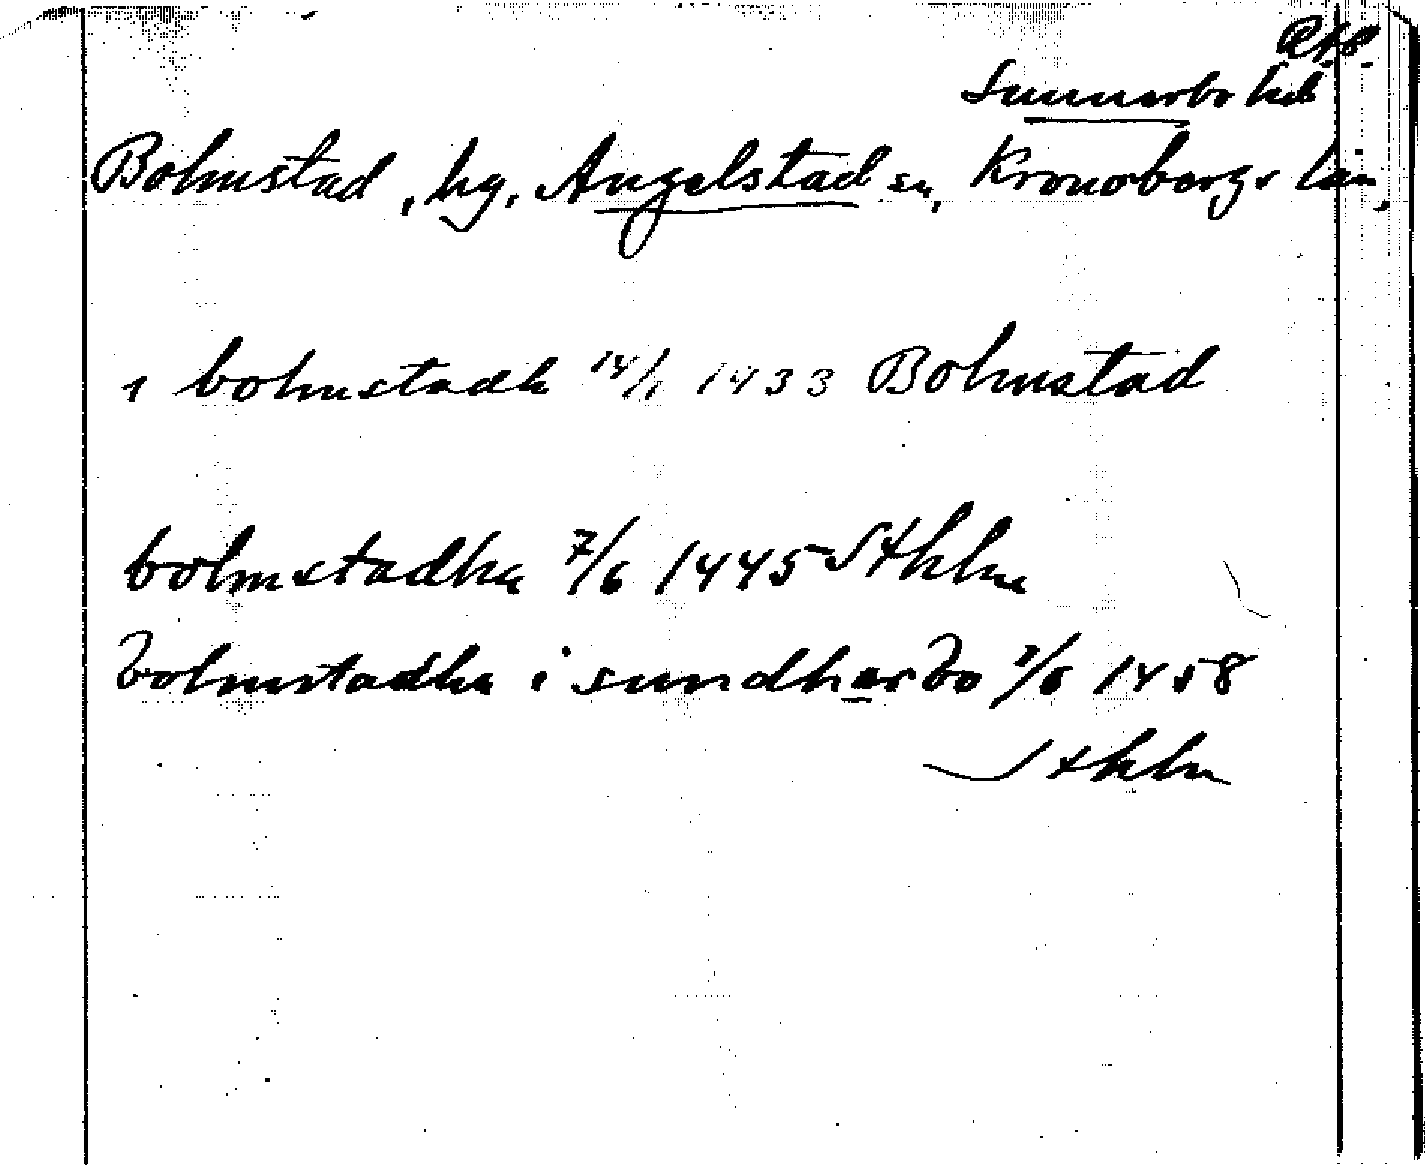 Sunnerbo hd
Bolmstad, by, Angelstad sn, Kronobergs län,
i bolmstadh 14/1 1433 Bolmstad
bolmstadha 7/6 1445 Sthlm
bolmstadha i sundherbo 7/6 1458
Sthlm